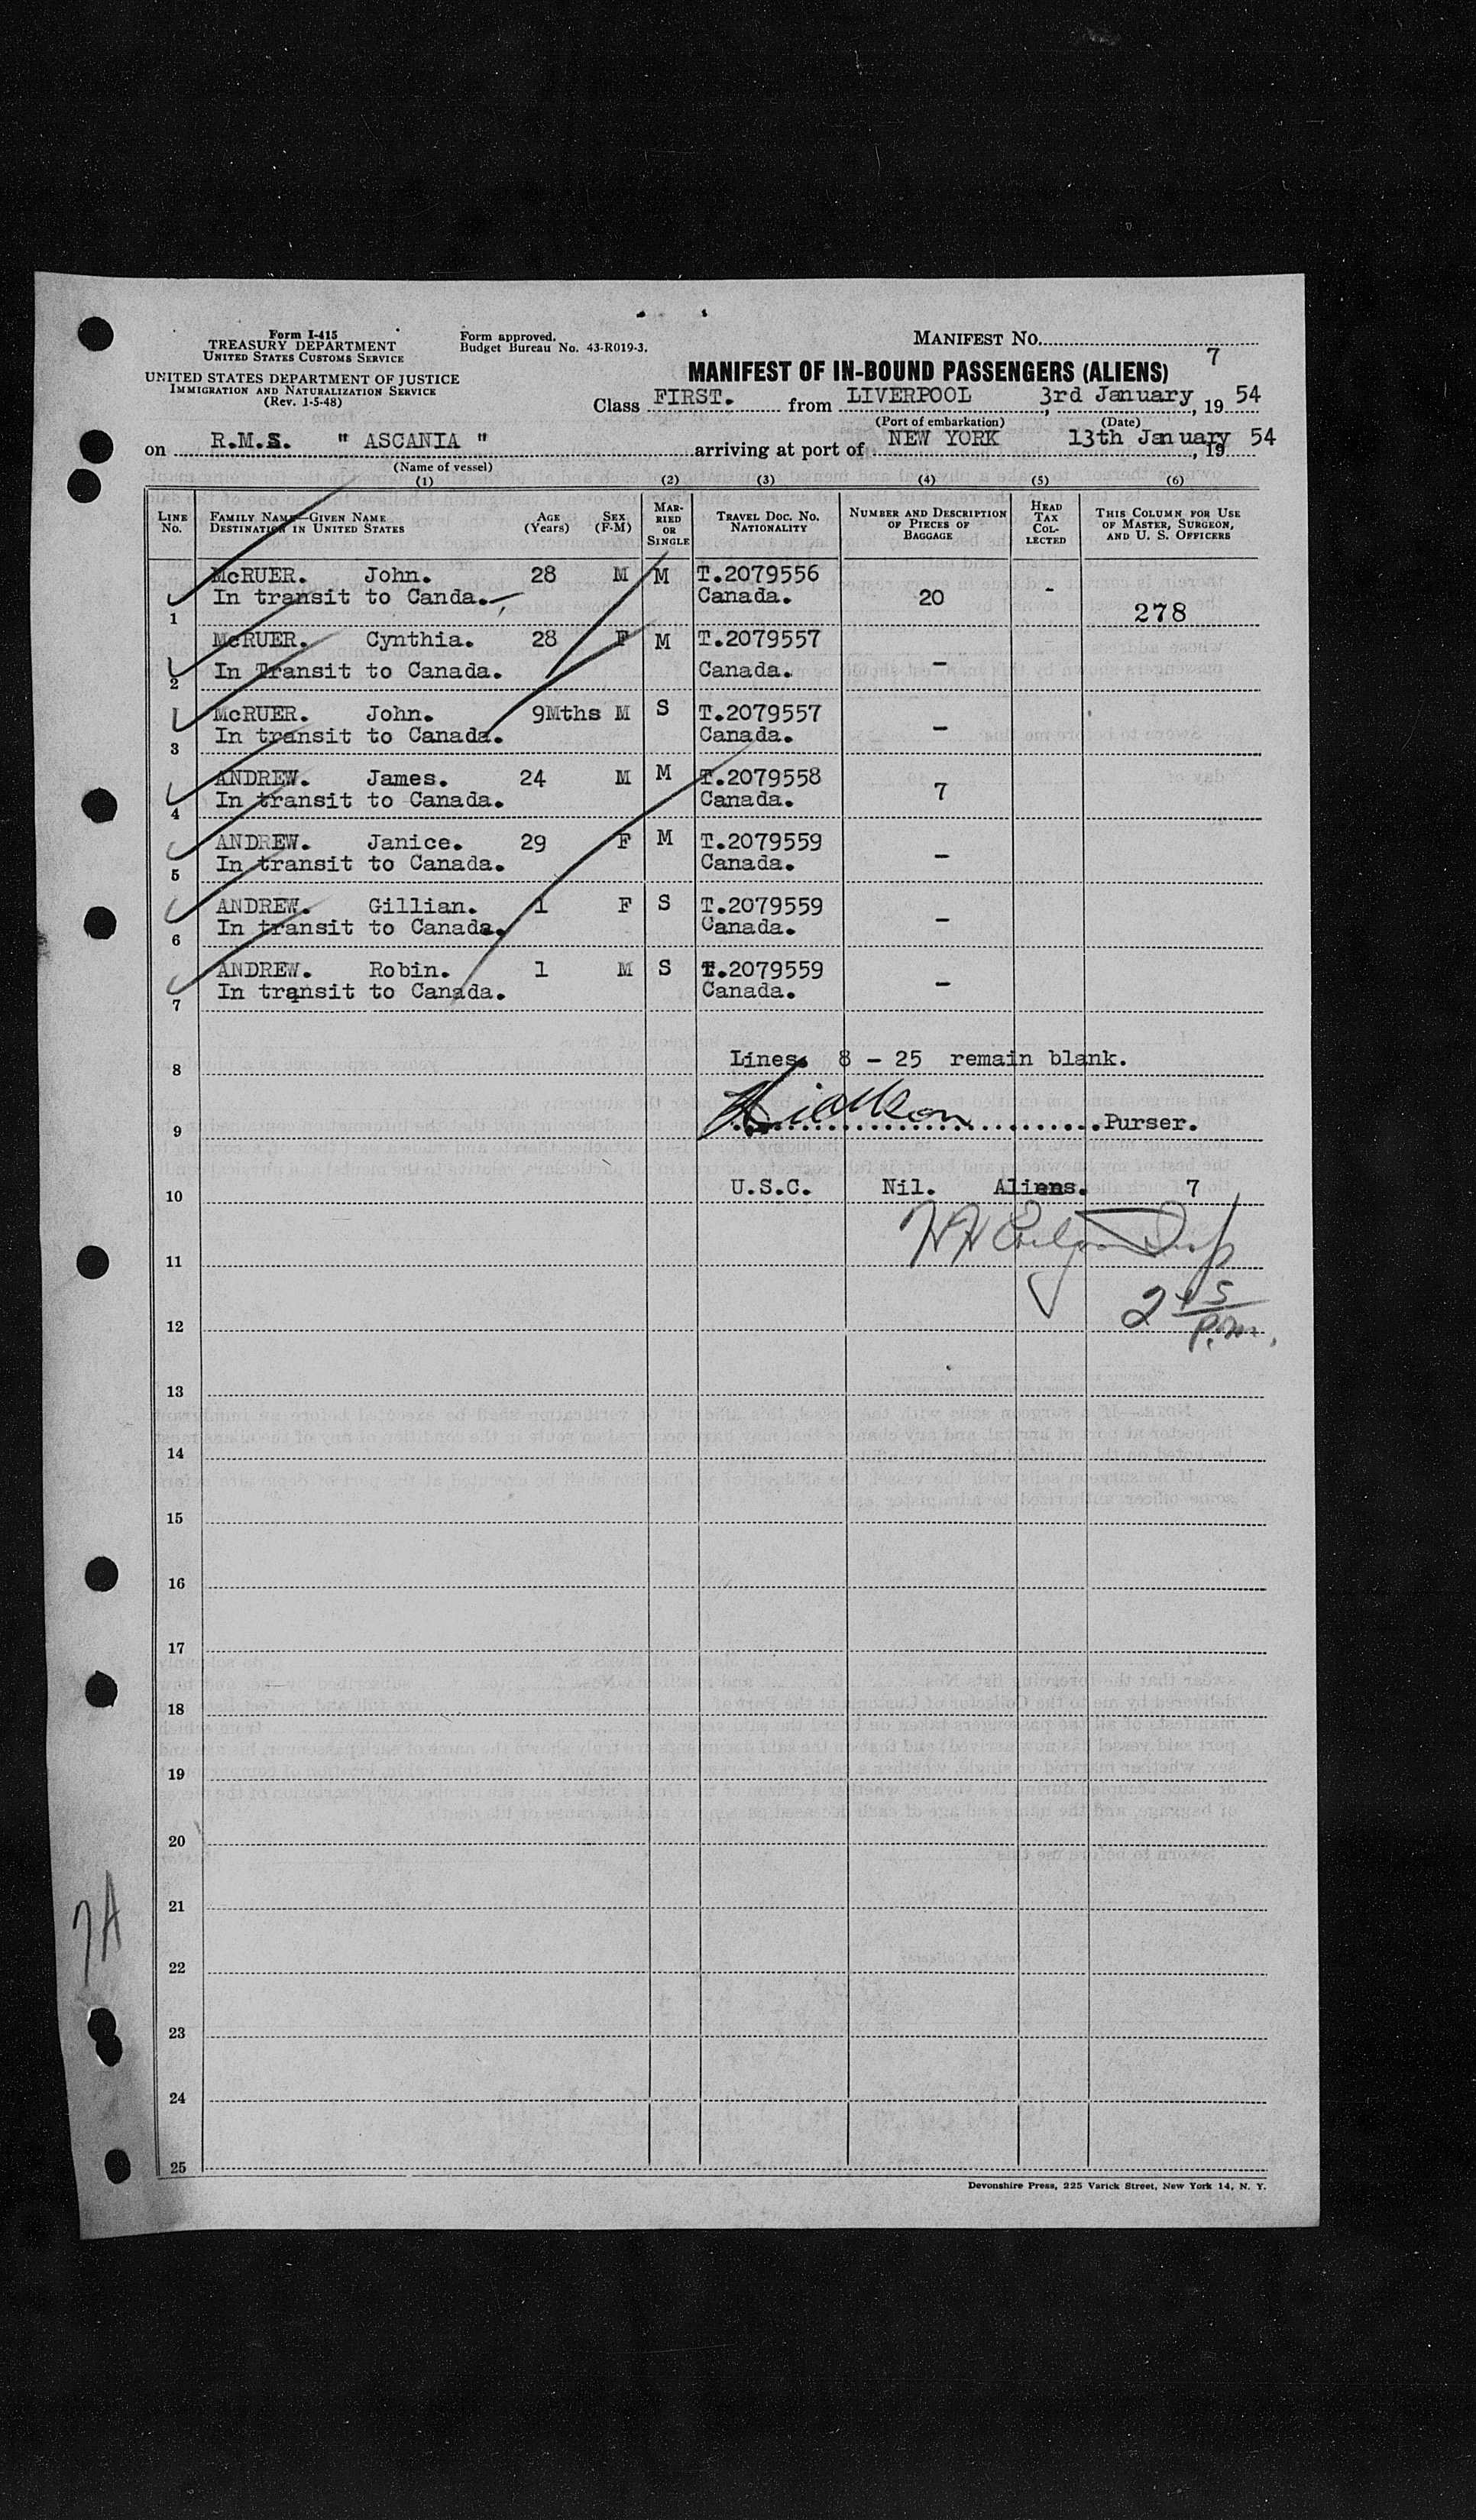 Form I-415
TREASURY DEPARTMENT
UNITED STATES CUSTOMS SERVICE
Form approved.
Budget Bureau No. 43-R019-3.
MANIFEST NO.
7
UNITED STATES DEPARTMENT OF JUSTICE
IMMIGRATION AND NATURALIZATION SERVICE
(Rev. 1-5-48)
MANIFEST OF IN-BOUND PASSENGERS (ALIENS)
Class FIRST. from LIVERPOOL, 3rd January, 19 54
(Port of embarkation) (Date)
on R.M.S. " ASCANIA " arriving at port of NEW YORK 13th January, 19 54
(Name of vessel)
(1) (2) (3) (4) (5) (6)
LINE NO. FAMILY NAME—GIVEN NAME DESTINATION IN UNITED STATES AGE (Years) SEX (F-M) MARRIED OR SINGLE TRAVEL DOC. NO. NATIONALITY NUMBER AND DESCRIPTION OF PIECES OF BAGGAGE HEAD TAX COLLECTED THIS COLUMN FOR USE OF MASTER, SURGEON, AND U. S. OFFICERS
McRUER. John. 28 M M T.2079556
1 In transit to Canda. Canada. 20 - 278
McRUER. Cynthia. 28 F M T.2079557
2 In Transit to Canada. Canada. -
McRUER. John. 9Mths M S T.2079557
3 In transit to Canada. Canada. -
ANDREW. James. 24 M M T.2079558
4 In transit to Canada. Canada. 7
ANDREW. Janice. 29 F M T.2079559
5 In transit to Canada. Canada. -
ANDREW. Gillian. 1 F S T.2079559
6 In transit to Canada. Canada. -
ANDREW. Robin. 1 M S T.2079559
7 In transit to Canada. Canada. -
8 Lines. 8 - 25 remain blank.
9 Purser.
10 U.S.C. Nil. Aliens. 7
11
12 2 45 P.m.
13
14
15
16
17
18
19
20
21
7A
22
23
24
25
Devonshire Press, 225 Varick Street, New York 14, N. Y.